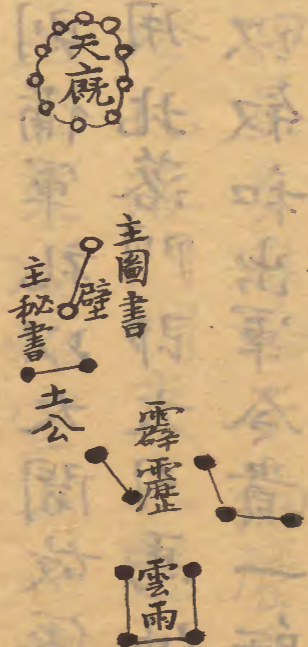 天廐
主圖書
壁
主秘書
土公
霹靂
雲雨